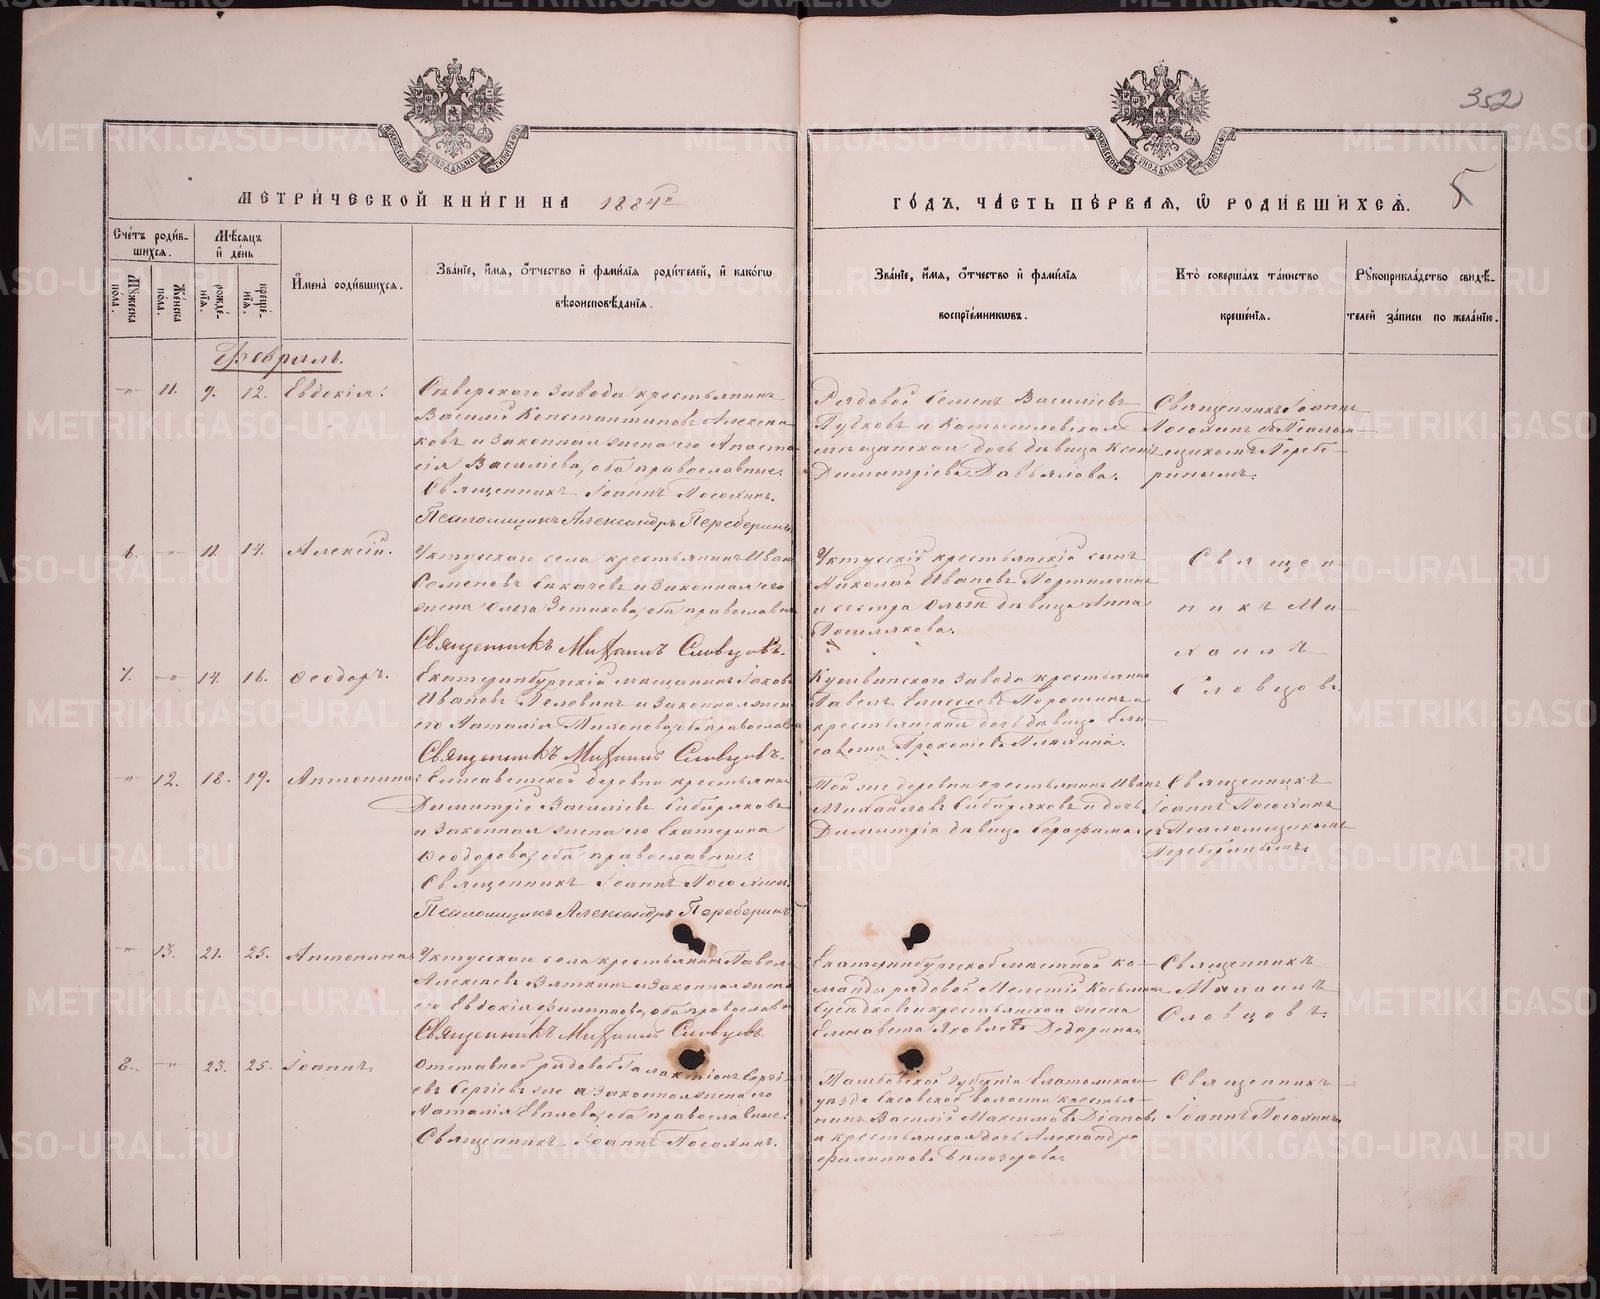 352
МОСКОВСКОЙ СѴНОДАЛЬНОЙ ТИПОГРАФІИ
МОСКОВСКОЙ СѴНОДАЛЬНОЙ ТИПОГРАФІИ
МЕТРИ́ЧЕСКОЙ КНИ́ГИ НА 1884й
ГО́ДЪ, ЧА́СТЬ ПЕ́РВАЯ, Ѡ РОДИ́ВШИХСЯ.
5
Сче́тъ роди́в-
шихся.
Му́жеска по́ла.
Же́нска по́ла.
Мѣ́сяцъ
и де́нь
рожде́-
нїя.
креще́-
нїя.
Имена̀ роди́вшихся.
Зва́нїе, и́мя, о́тчество и фами́лїя роди́телей, и како́гѡ
вѣроисповѣ́данїя.
Зва́нїе, и́мя, о́тчество и фами́лїя
воспрїе́мникѡвъ.
Кто̀ соверша́лъ та́инство
креще́нїя.
Рꙋкоприкла́дство свидѣ́-
телей за́писи по жела́нїю.
Февраль.
-"- 11. 9. 12. Евдокія.
Сѣверскаго завода крестьянинъ
Василій Константиновъ
ковъ и законная жена его Анаста-
сія Васильева, оба православные.
Священникъ Іоаннъ Посохинъ.
Псаломщикъ Александръ Переберинъ
Рядовой Семенъ Васильевъ
Губковъ и Камышловская
мѣщанская дочь дѣвица Ксенія
Димитріева Давыдова.
Священникъ Іоаннъ
Посохинъ съ Псалом-
щикомъ Перебе-
ринымъ.
6. -"- 11. 14. Алексій.
Уктусскаго села крестьянинъ Иванъ
Семеновъ и законная его
жена Ольга Зотикова, оба православн
Священникъ Михаилъ Словцовъ.
Уктусскій крестьянскій сынъ
Николай Ивановъ
и сестра Ольги дѣвица Анна
Священ
никъ Ми-
хаилъ
Словцовъ.
7. -"- 14. 16. Ѳеодоръ.
Екатеринбургскій мѣщанинъ Іаковъ
Ивановъ и законная жена
его Наталія Тихонова, оба православн
Священникъ Михаилъ Словцовъ.
Кушвинскаго завода крестьянинъ
Павелъ Елисеевъ Порошинъ и
крестьянская дочь дѣвица Ели-
савета Прокопіева
-"- 12. 18. 19. Антонина.
Елисаветской деревни крестьянинъ
Димитрій Васильевъ Сибиряковъ
и законная жена его Екатерина
Ѳеодорова, оба православные.
Священникъ Іоаннъ Посохинъ.
Псаломщикъ Александръ Переберинъ
Той же деревни крестьянинъ Иванъ
Михайловъ Сибиряковъ и дочь
Димитрія дѣвица Серафима.
Священникъ
Іоаннъ Посохинъ
съ Псаломщикомъ
Переберинымъ.
-"- 13. 21. 25. Антонина
Уктусскаго села крестьянинъ Павелъ
Алексѣевъ Вяткинъ и законная жена
его Евдокія Филиппова, оба православн
Священникъ Михаилъ Словцовъ
Екатеринбургской мѣстной ко-
манды рядовой Мелетій Косьминъ
и крестьянская жена
Елисавета Яковлева Дедюхина.
Священникъ
Михаилъ
Словцовъ.
8. -"- 23. 25. Іоаннъ.
Отставной рядовой Галактіонъ Сергі-
евъ Сергіевъ же и законная жена его
Наталія оба православные.
Священникъ Іоаннъ Посохинъ.
Тамбовской губерніи Елатомскаго
уѣзда Сасовской волости крестья-
нинъ Василій Максимовъ
и крестьянская дочь Александра
Филиппова Бѣлозерова.
Священникъ
Іоаннъ Посохинъ
METRIKI.GASO-URAL.RU